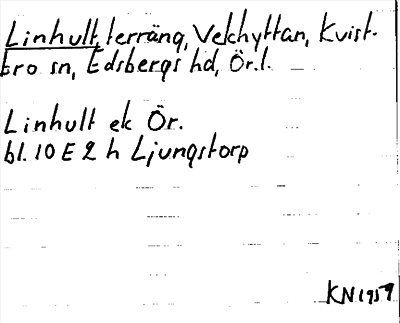 Linhult, terräng, Velchyttan, Kvist-
bro sn, Edsbergs hd, Ör.l.
Linhult ek Ör.
bl. 10 E 2 h Ljungstorp
KN 1959